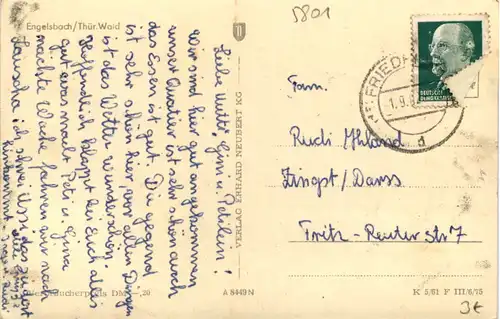 Engelsbach/Thür. Wald
5801
Liebe Mutti, Gini u. Peterlein!
Wir sind hier gut angekommen
unser Quartier ist sehr schön auch
das Essen ist gut. Die Gegend
ist sehr schön hier, vor allen Dingen
ist das Wetter wunderschön.
Hoffentlich klappt bei Euch alles
gut was macht Peti u. Gina
nächste Woche fahren wir nach
Lauscha ich schreib
VERLAG ERHARD NEUBERT KG
FRIED
1.9.6
d
DEUTSCHE
DEMOKRATISCHE
Fam.
Rudi Ahland
Zingst/Darss
Fritz-Reuter Str 7
Verbraucherpreis DM -,20
A 8449 N
K 5/61 F III/6/75
3€